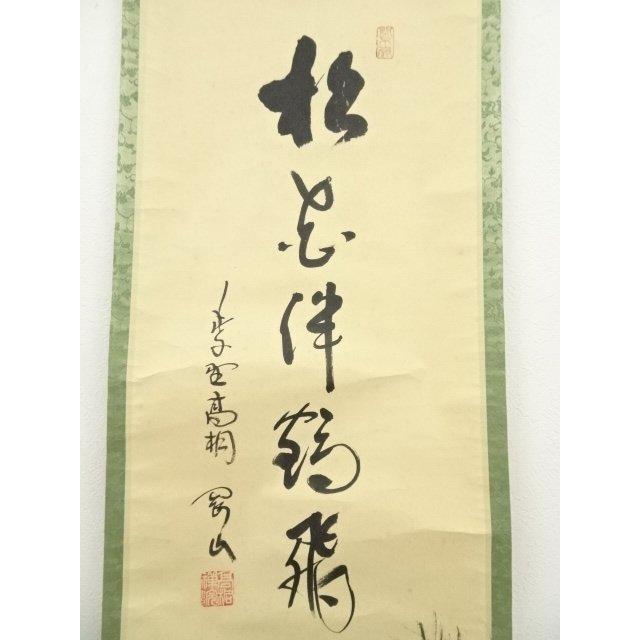 松花伴鶴飛
紫野高桐 剛山